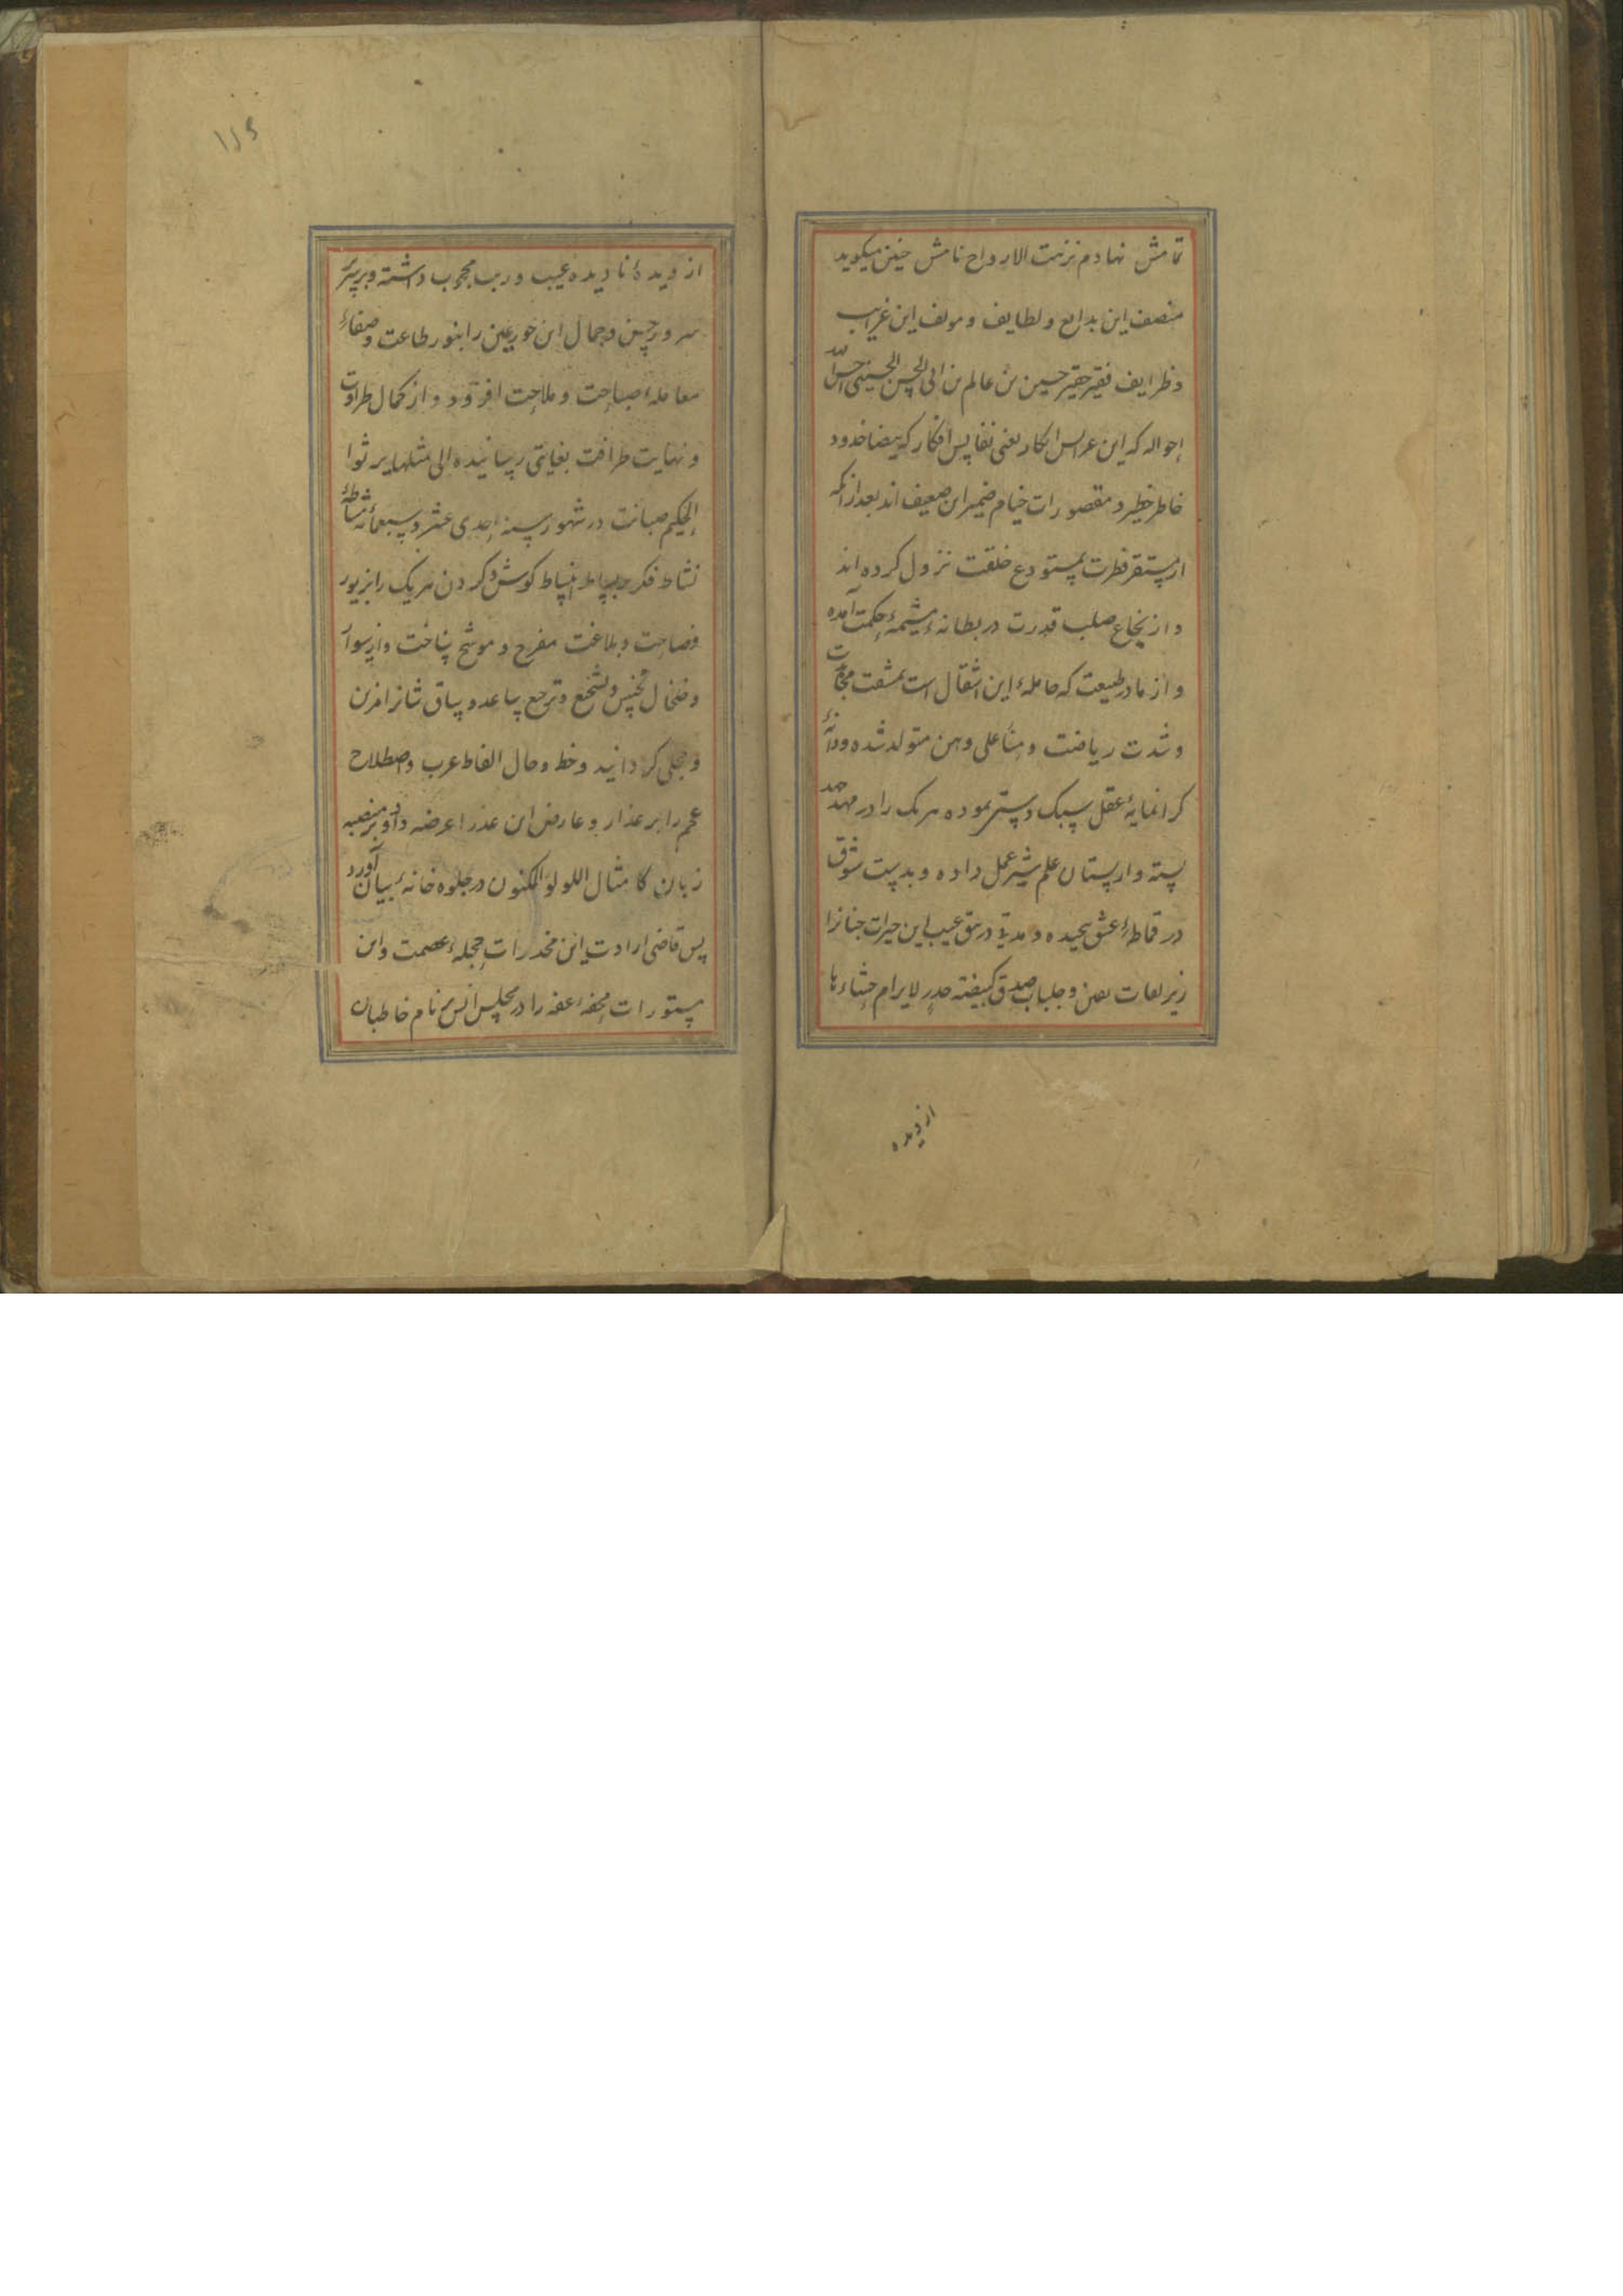 تمامش نهادم نزهت الارواح نامش چنین میکوید
منصف این بدایع و لطایف و مولف این غرایب
و ظرایف فقیر حقیر حسین بن عالم بن ابی الحسن الحسینی احسن الله
احواله که این عرایس ابکار یعنی نفایس افکار که بیضا خدود
خاطر خطیر و مقصورات خیام ضمیر این ضعیف اند بعد از انکه
از مستقر فطرت بمستودع خلقت نزول کرده اند
و از نخاع صلب قدرت در بطانهٔ مشیمهٔ حکمت آمده
و از مادر طبیعت که حاملهٔ این اثقال است بمشقت مجاهدت
و شدت ریاضت وهنا علی وهن متولد شده و دایهٔ
کرانمایهٔ عقل سبک دستی نموده هر یک را در مهد جهد
بسته و از پستان علم شیر عمل داده و بدست شوق
در قماطهٔ عشق پیچیده و مدتی در تتق غیب این خیرات حسانرا
زیر لفات صون و جلباب صدق کبیضته خدر لا یرام خباءها
از دیده
۱۲۵
از دیدهٔ نادیدهٔ عیب و ریب محجوب داشته و بر سریر
سرور حسن و جمال این حور عین را بنور طاعت و صفاء
معامله صباحت و ملاحت افزود و از کمال طراوت
و نهایت ظرافت بغایتی رسانیده الی مثلها یرنوا
الحکیم صبابت در شهور سنه احدی عشر و سبعمائه مشاطهٔ
نشاط فکر بر بساط انبساط کوش و کردن هر یک را بزیور
فصاحت و بلاغت مفرح و موشح ساخت و از سوار
و خلخال تجنیس و تسجیع و ترجیع ساعد و ساق شانرا مزین
و محلی کردانید و خط و خال الفاظ عرب و اصطلاح
عجم را بر عذار و عارض این عذرا عرضه داد و بر منصبه
زبان کامثال اللولو المکنون در جلوه خانهٔ بیان آورد
پس قاضی ارادت این مخدرات حجلهٔ عصمت و این
مستورات محفهٔ عفه را در مجلس انس بنام خاطبان